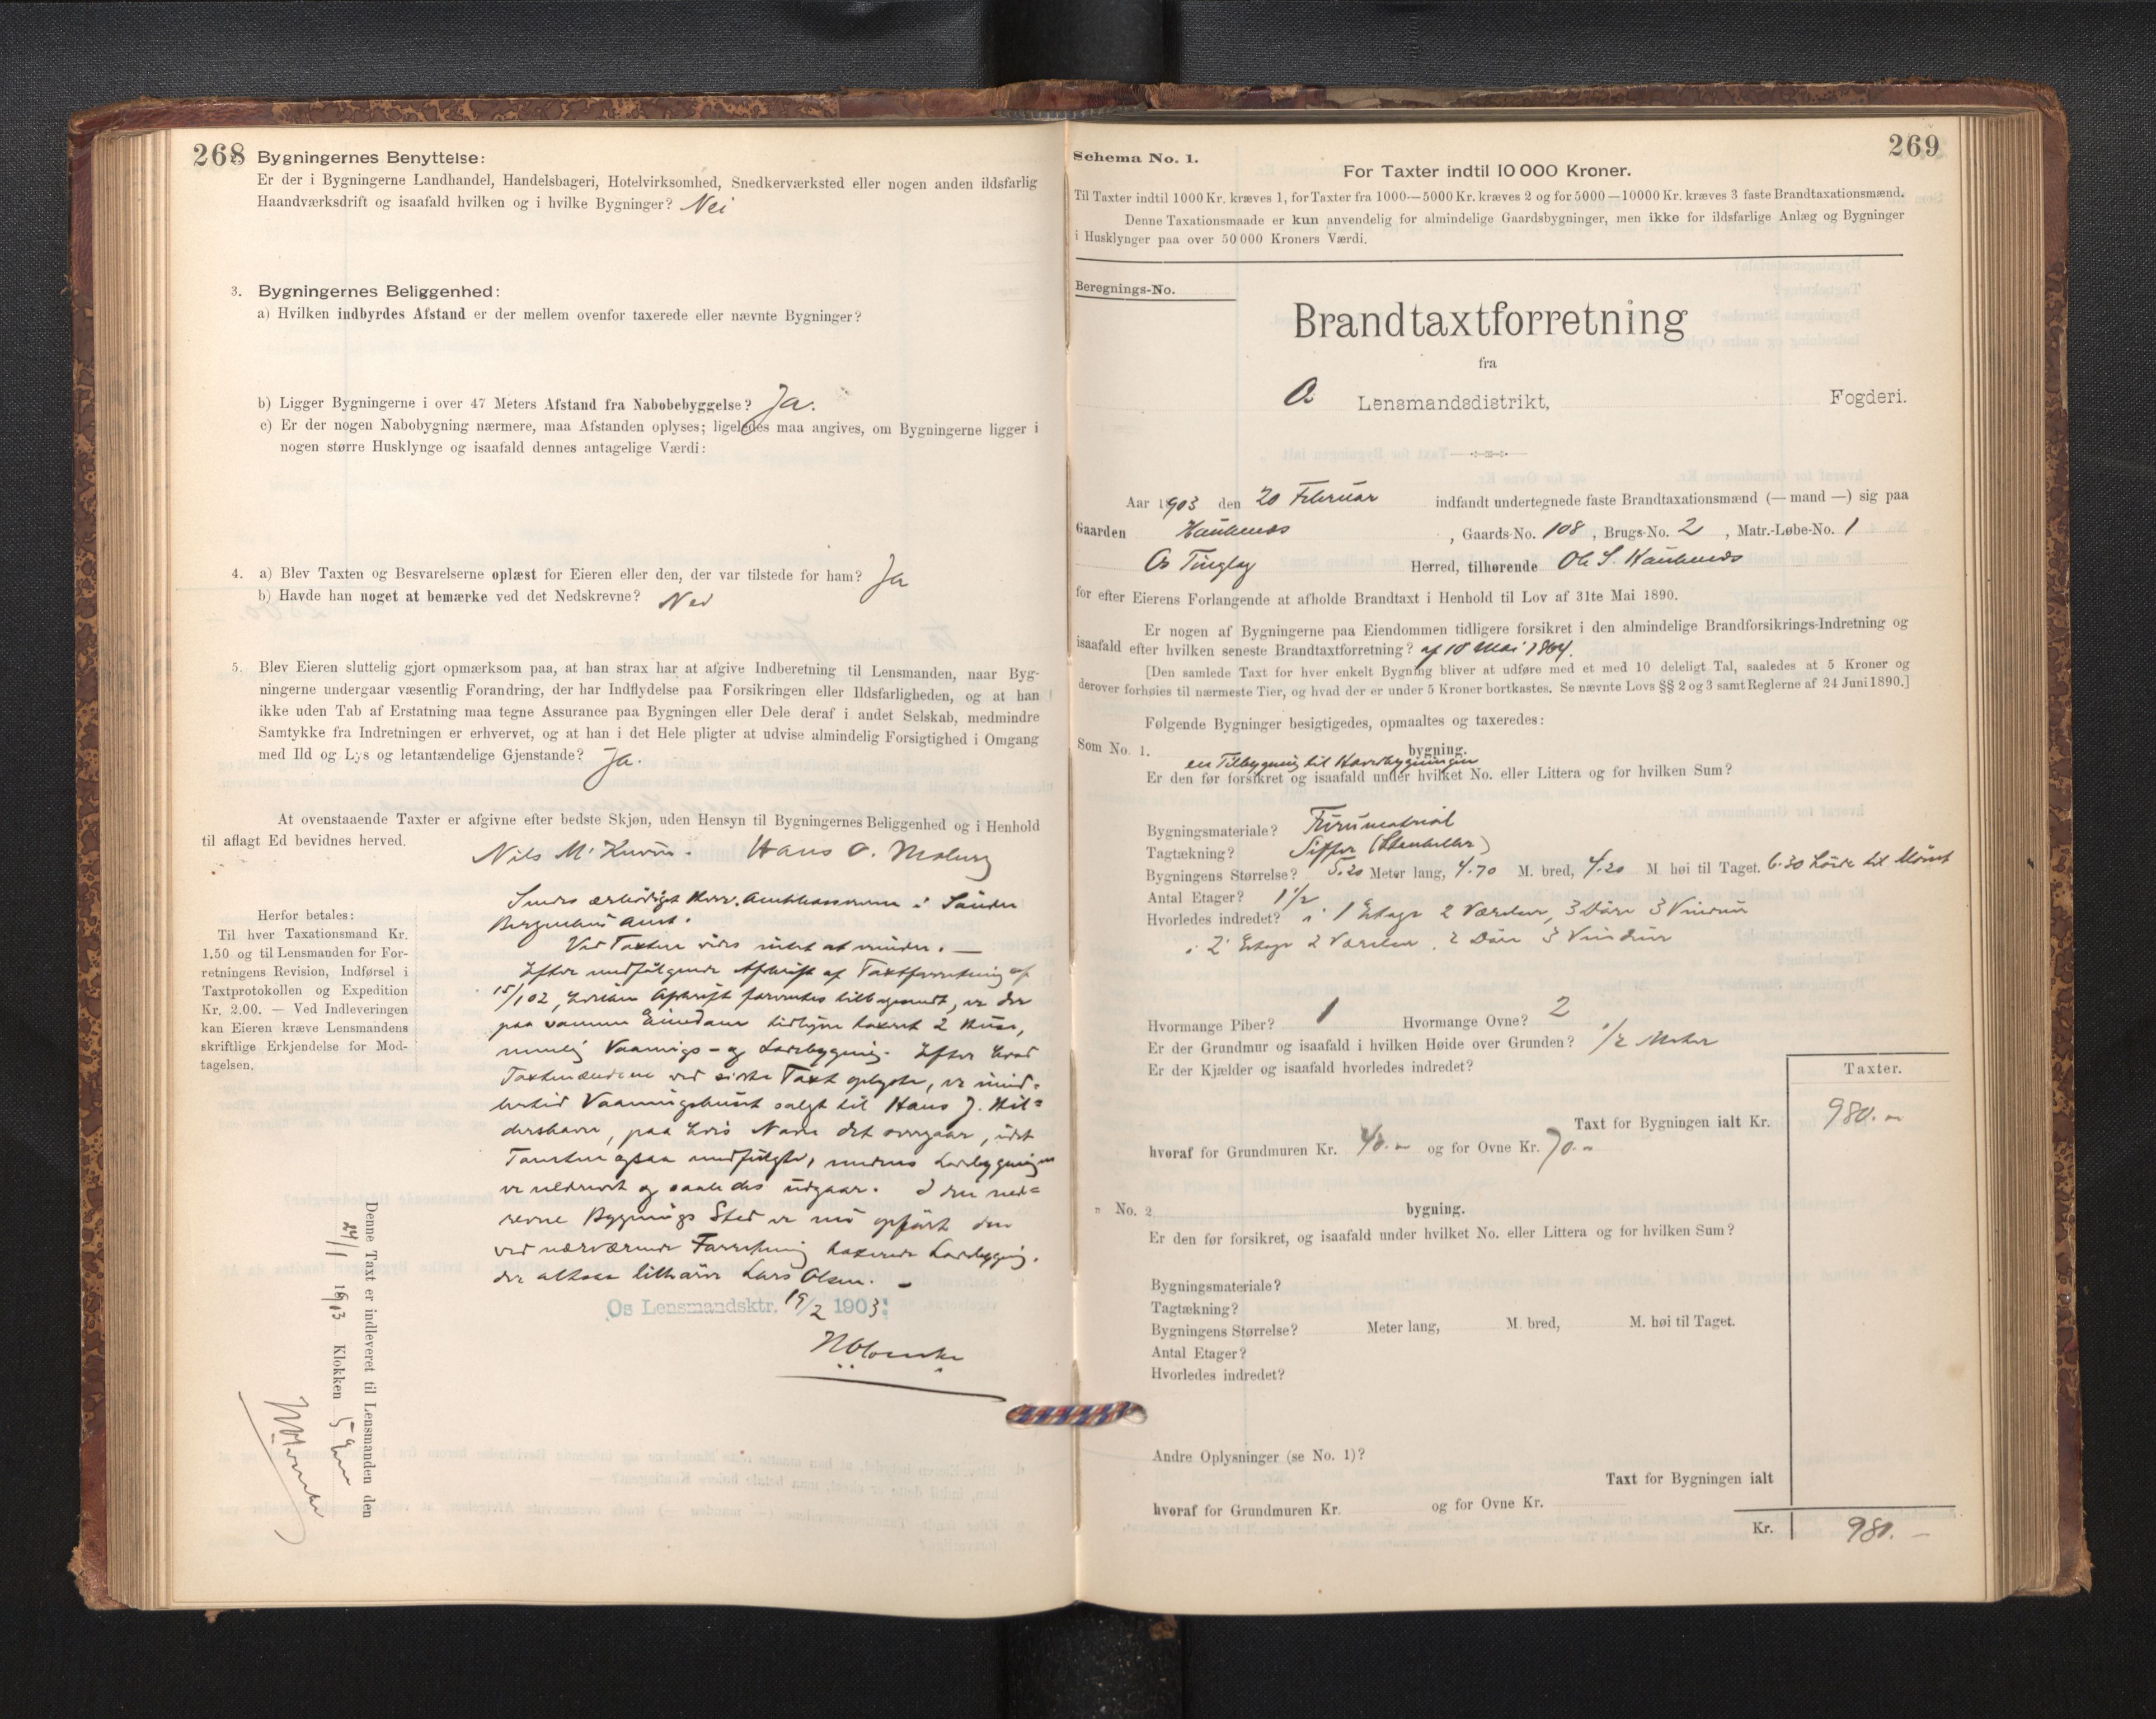 268
Bygningernes Benyttelse:
Er der i Bygningerne Landhandel, Handelsbageri, Hotelvirksomhed, Snedkerværksted eller nogen anden ildsfarlig
Haandværksdrift og isaafald hvilken og i hvilke Bygninger? Nei
3. Bygningernes Beliggenhed:
a) Hvilken indbyrdes Afstand er der mellem ovenfor taxerede eller nævnte Bygninger?
b) Ligger Bygningerne i over 47 Meters Afstand fra Nabobebyggelse? Ja.
c) Er der nogen Nabobygning nærmere, maa Afstanden oplyses; ligeledes maa angives, om Bygningerne ligger i
nogen større Husklynge og isaafald dennes antagelige Værdi:
4. a) Blev Taxten og Besvarelserne oplæst for Eieren eller den, der var tilstede for ham? Ja
b) Havde han noget at bemærke ved det Nedskrevne? Nei
5. Blev Eieren sluttelig gjort opmærksom paa, at han strax har at afgive Indberetning til Lensmanden, naar Byg-
ningerne undergaar væsentlig Forandring, der har Indflydelse paa Forsikringen eller Ildsfarligheden, og at han
ikke uden Tab af Erstatning maa tegne Assurance paa Bygningen eller Dele deraf i andet Selskab, medmindre
Samtykke fra Indretningen er erhvervet, og at han i det Hele pligter at udvise almindelig Forsigtighed i Omgang
med Ild og Lys og letantændelige Gjenstande? Ja.
At ovenstaaende Taxter er afgivne efter bedste Skjøn, uden Hensyn til Bygningernes Beliggenhed og i Henhold
til aflagt Ed bevidnes herved.
Nils M. Hans O. Moberg
Sendes ærbødigst Herr. Amtskassereren i Søndre
Bergenhus Amt.
Ved Taxten vides intet at erindre. —
Efter medfølgende Afskrift af Taxtforretning af
15/1 02, hvilken Afskrift forventes tilbagesendt, er der
paa samme Eiendom tidligere taxeret 2 Huse,
nemlig Vaanings- og Ladebygning. Efter hvad
Taxtmændene ved sidste Taxt oplyste, er imid-
lertid Vaaningshuset solgt til Hans J. Hil-
dershavn, paa hvis Navn det overgaar, idet
Tomten ogsaa medfulgte, medens Ladebygningen
er nedrevet og saaledes udgaar. I den ned-
revne Bygnings Sted er nu opført den
ved nærværende Forretning taxerede Ladebygning,
der altsaa tilhører Lars Olsen. —
Os Lensmandsktr. 19/2 1903.
Herfor betales:
Til hver Taxationsmand Kr.
1.50 og til Lensmanden for For-
retningens Revision, Indførsel i
Taxtprotokollen og Expedition
Kr. 2.00. — Ved Indleveringen
kan Eieren kræve Lensmandens
skriftlige Erkjendelse for Mod-
tagelsen.
Denne Taxt er indleveret til Lensmanden den
24/1 1903 Klokken 5 Em
269
Schema No. 1.
For Taxter indtil 10 000 Kroner.
Til Taxter indtil 1000 Kr. kræves 1, for Taxter fra 1000—5000 Kr. kræves 2 og for 5000—10000 Kr. kræves 3 faste Brandtaxationsmænd.
Denne Taxationsmaade er kun anvendelig for almindelige Gaardsbygninger, men ikke for ildsfarlige Anlæg og Bygninger
i Husklynger paa over 50 000 Kroners Værdi.
Beregnings-No.
Brandtaxtforretning
fra
Os Lensmandsdistrikt, Fogderi.
Aar 1903 den 20 Februar indfandt undertegnede faste Brandtaxationsmænd (— mand —) sig paa
Gaarden Haukenæs, Gaards-No. 108, Brugs-No. 2, Matr.-Løbe-No. 1
Os Tinglag Herred, tilhørende Ole S. Haukenæs
for efter Eierens Forlangende at afholde Brandtaxt i Henhold til Lov af 31te Mai 1890.
Er nogen af Bygningerne paa Eiendommen tidligere forsikret i den almindelige Brandforsikrings-Indretning og
isaafald efter hvilken seneste Brandtaxtforretning? af 10 Mai 1864.
[Den samlede Taxt for hver enkelt Bygning bliver at udføre med et med 10 deleligt Tal, saaledes at 5 Kroner og
derover forhøies til nærmeste Tier, og hvad der er under 5 Kroner bortkastes. Se nævnte Lovs §§ 2 og 3 samt Reglerne af 24 Juni 1890.]
Følgende Bygninger besigtigedes, opmaaltes og taxeredes:
Som No. 1. en Tilbygning til Hovedbygningen bygning.
Er den før forsikret og isaafald under hvilket No. eller Littera og for hvilken Sum?
Bygningsmateriale? Furumaterial
Tagtækning? Skifer (Stenheller)
Bygningens Størrelse? 5.20 Meter lang, 4.70 M. bred, 4.20 M. høi til Taget. 6.30 Høide til Mønet
Antal Etager? 1 1/2
Hvorledes indredet? i 1 Etage 2 Værelser, 3 Døre 3 Vinduer
i 2 Etage 2 Værelser, 2 Døre 3 Vinduer
Hvormange Piber? 1 Hvormange Ovne? 2
Er der Grundmur og isaafald i hvilken Høide over Grunden? 1/2 Meter
Er der Kjælder og isaafald hvorledes indredet?
Taxter.
Taxt for Bygningen ialt Kr. 980.-
hvoraf for Grundmuren Kr. 40.- og for Ovne Kr. 70.-
" No. 2 bygning.
Er den før forsikret, og isaafald under hvilket No. eller Littera og for hvilken Sum?
Bygningsmateriale?
Tagtækning?
Bygningens Størrelse? Meter lang, M. bred, M. høi til Taget.
Antal Etager?
Hvorledes indredet?
Andre Oplysninger (se No. 1)?
Taxt for Bygningen ialt
hvoraf for Grundmuren Kr. og for Ovne Kr.
Kr. 980.-